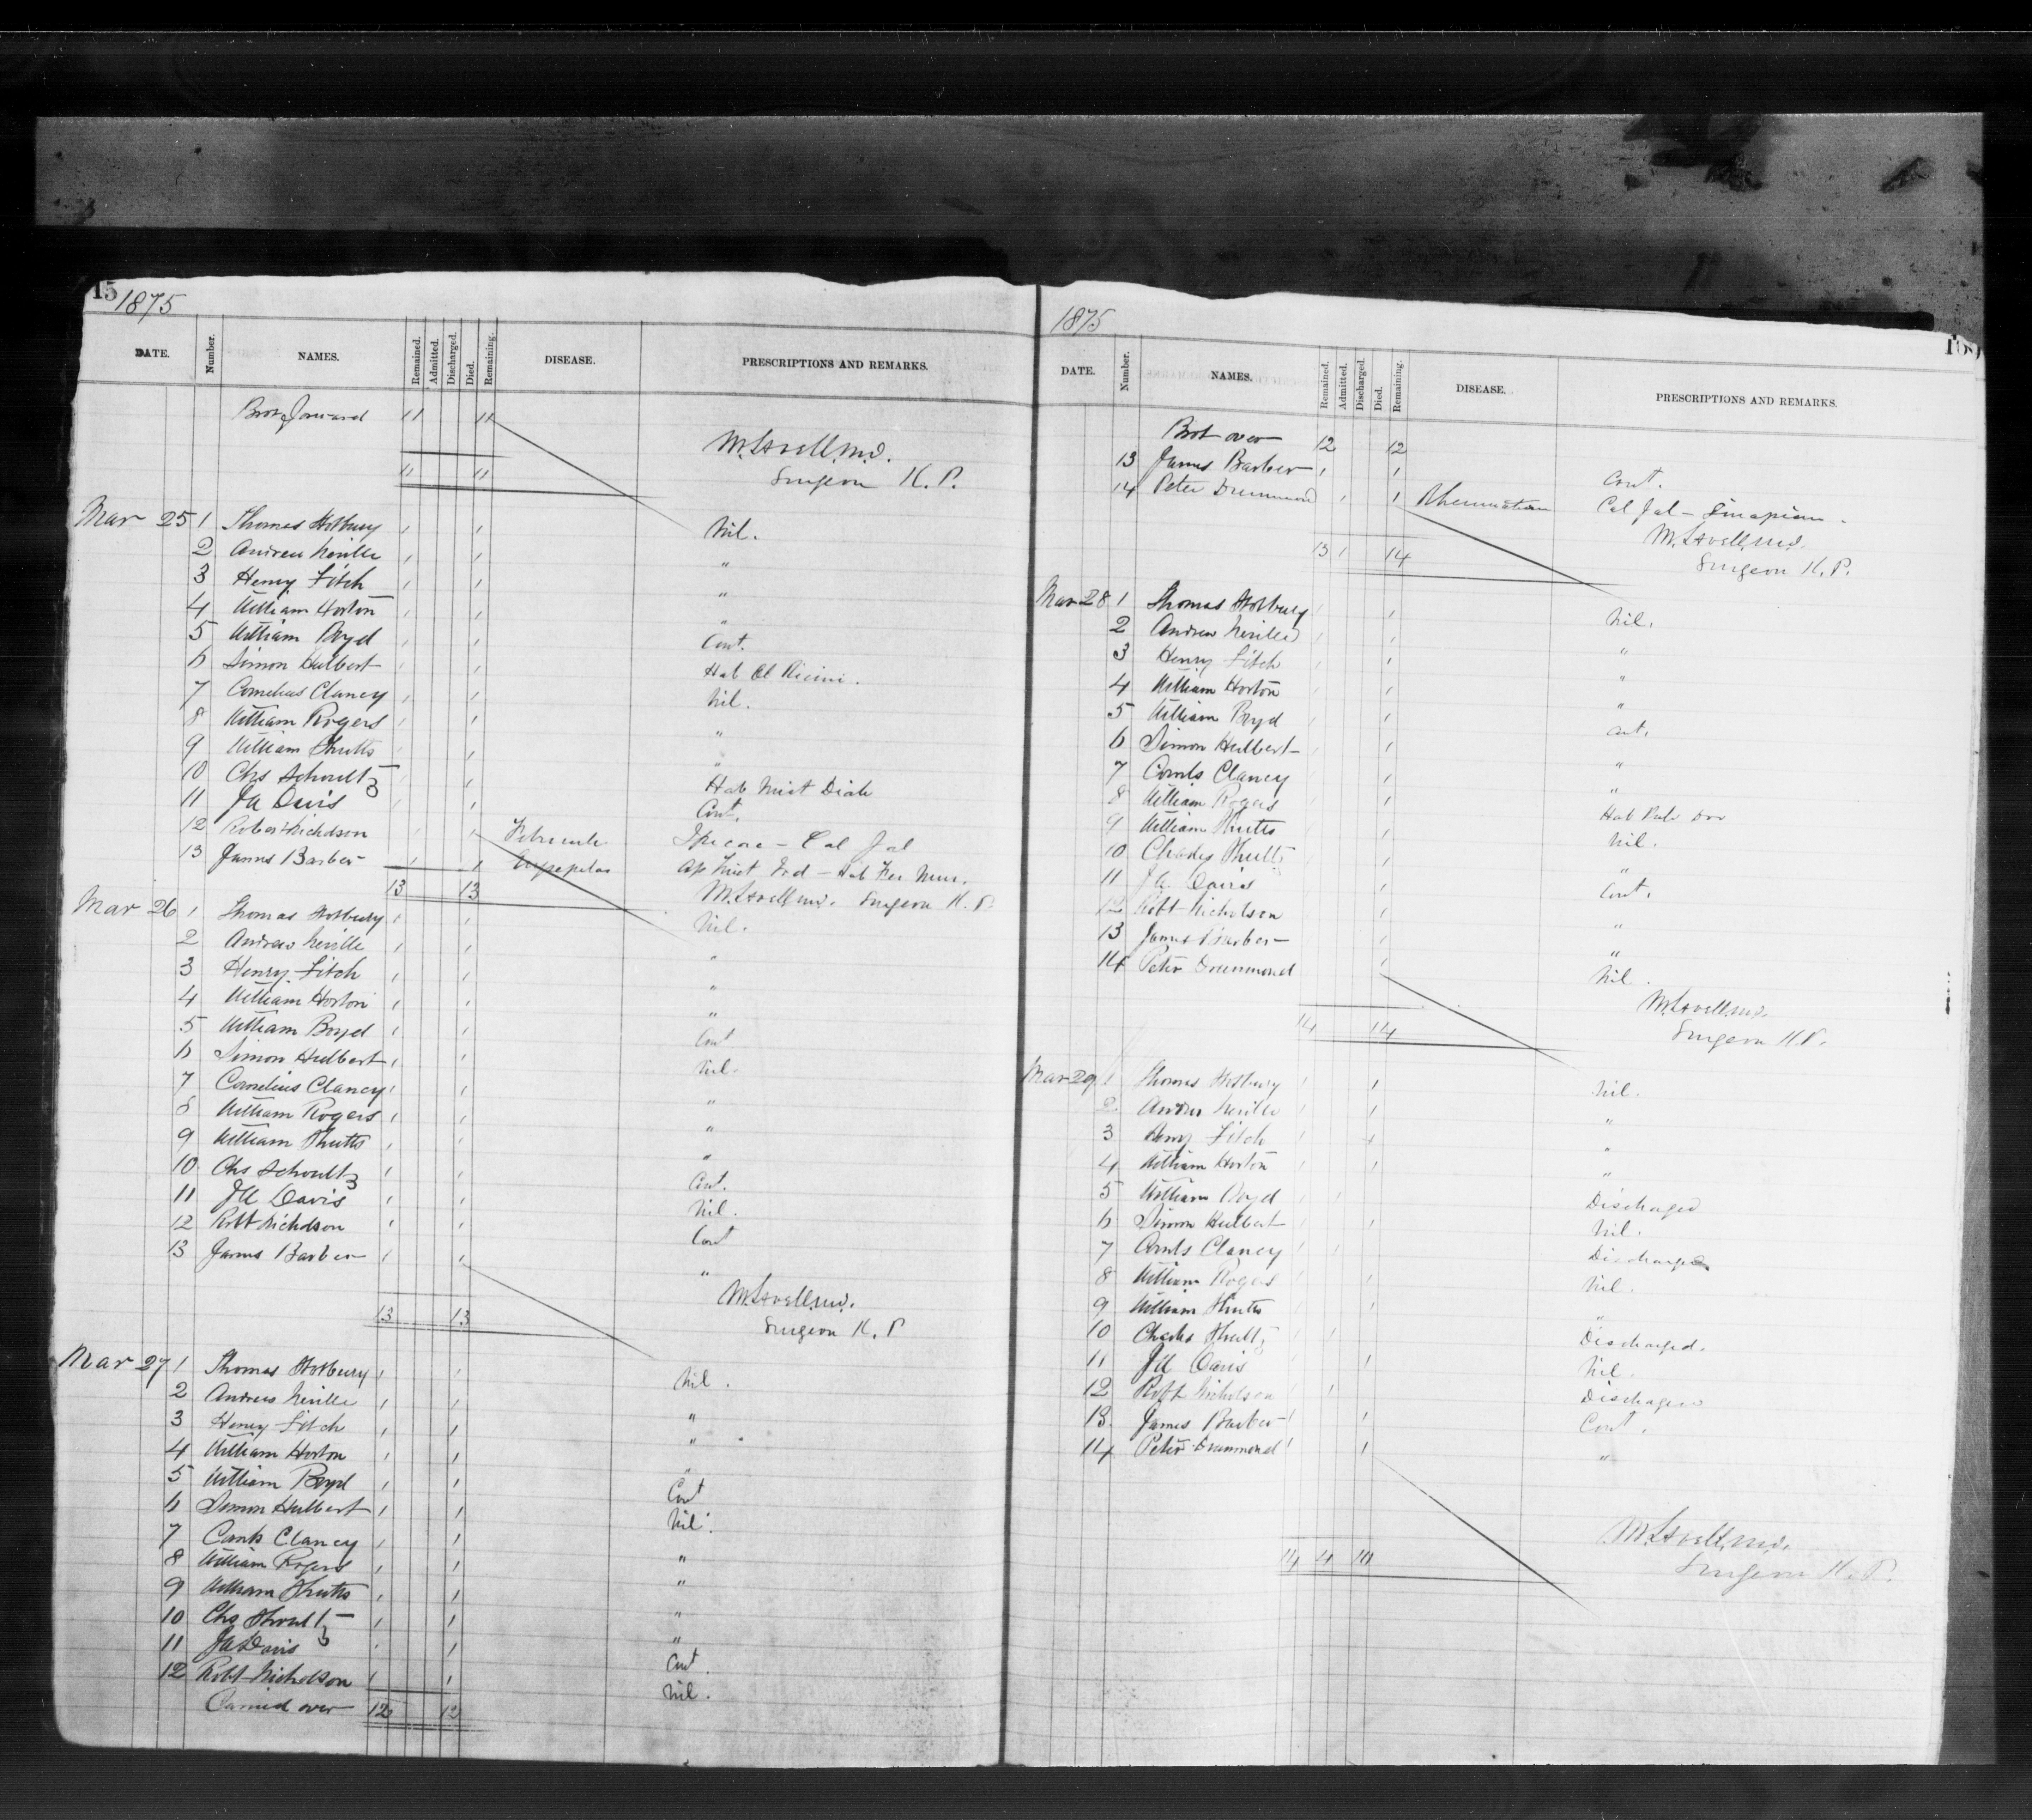 15
1875
DATE. Number. NAMES. Remained. Admitted. Discharged. Died. Remaining. DISEASE. PRESCRIPTIONS AND REMARKS.
Brot forward 11 11
M. Lavell M.D.
11 11 Surgeon K. P.
Mar 25 1 Thomas 1 1 Nil.
2 Andrew Neville 1 1 "
3 Henry Fitch 1 1 "
4 William Horton 1 1 "
5 William Boyd 1 1 Cont.
6 Simon Hulbert 1 1 Hab Ol Ricini.
7 Cornelius Clancy 1 1 Nil.
8 William Rogers 1 1 "
9 William Shutts 1 1 "
10 Chs Schoultz 1 1 Hab Mist
11 JA Davis 1 1 Cont.
12 Robert Nicholson 1 1 Cal Jal
13 James Barber 1 1 Erysipelas
13 13 M. Lavell M.D. Surgeon K. P.
Mar 26 1 Thomas 1 1 Nil.
2 Andrew Neville 1 1 "
3 Henry Fitch 1 1 "
4 William Horton 1 1 "
5 William Boyd 1 1 Cont
6 Simon Hulbert 1 1 Nil.
7 Cornelius Clancy 1 1 "
8 William Rogers 1 1 "
9 William Shutts 1 1 "
10 Chs Schoultz 1 1 Cont.
11 JA Davis 1 1 Nil.
12 Robt Nicholson 1 1 Cont
13 James Barber 1 1 "
M. Lavell M.D.
13 13 Surgeon K. P
Mar 27 1 Thomas 1 1 Nil.
2 Andrew Neville 1 1 "
3 Henry Fitch 1 1 "
4 William Horton 1 1 "
5 William Boyd 1 1 Cont
6 Simon Hulbert 1 1 Nil.
7 Cornls Clancy 1 1 "
8 William Rogers 1 1 "
9 William Shutts 1 1 "
10 Chs Shoultz 1 1 "
11 JA Davis 1 1 Cont.
12 Robt Nicholson 1 1 Nil.
Carried over 12 12
1875
DATE. Number. NAMES. Remained. Admitted. Discharged. Died. Remaining. DISEASE. PRESCRIPTIONS AND REMARKS.
Brot over 12 12
13 James Barber 1 1 Cont.
14 Peter Drummond 1 1 Rheumatism Cal Jal - Sinapism.
M. Lavell M.D.
13 1 14 Surgeon K. P.
Mar 28 1 Thomas 1 1 Nil.
2 Andrew Neville 1 1 "
3 Henry Fitch 1 1 "
4 William Horton 1 1 "
5 William Boyd 1 1 Cont.
6 Simon Hulbert 1 1 "
7 Cornls Clancy 1 1 "
8 William Rogers 1 1 Hab Pulv Dov
9 William Shutts 1 1 Nil.
10 Charles Shultz 1 1 "
11 JA Davis 1 1 Cont.
12 Robt Nicholson 1 1 "
13 James Barber 1 1 "
14 Peter Drummond 1 1 Nil.
M. Lavell M.D.
14 14 Surgeon K.P.
Mar 29 1 Thomas 1 1 Nil.
2 Andrew Neville 1 1 "
3 Henry Fitch 1 1 "
4 William Horton 1 1 "
5 William Boyd 1 1 Discharged
6 Simon Hulbert 1 1 Nil.
7 Cornls Clancy 1 1 Discharged
8 William Rogers 1 1 Nil.
9 William Shutts 1 1 "
10 Charles Shultz 1 1 Discharged.
11 JA Davis 1 1 Nil.
12 Robt Nicholson 1 1 Discharged
13 James Barber 1 1 Cont.
14 Peter Drummond 1 1 "
M. Lavell M.D.
14 4 10 Surgeon K. P.